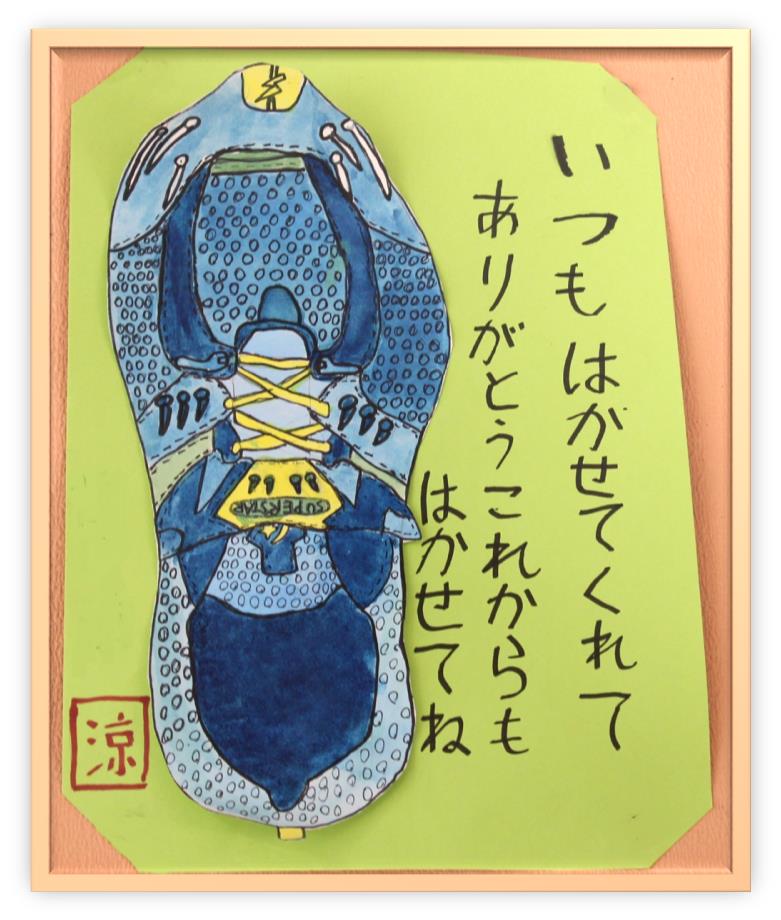 いつもはかせてくれて
ありがとうこれからも
はかせてね
SUPERSTAR
涼